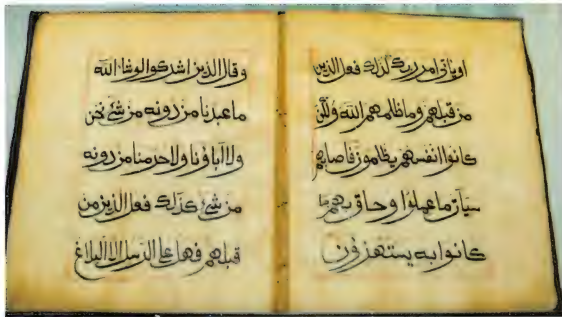 او ياتى امر ربك كذلك فعل الذين
من قبلهم وما ظلمهم الله ولكن
كانوا انفسهم يظلمون فاصابهم
سيات ما عملوا وحاق بهم ما
كانوا به يستهزؤن
و قال الذين اشركوا لو شا الله
ما عبدنا من دونه من شئ نحن
ولا اباؤنا ولا حرمنا من دونه
من شئ كذلك فعل الذين من
قبلهم فهل على الرسل الا البلاغ